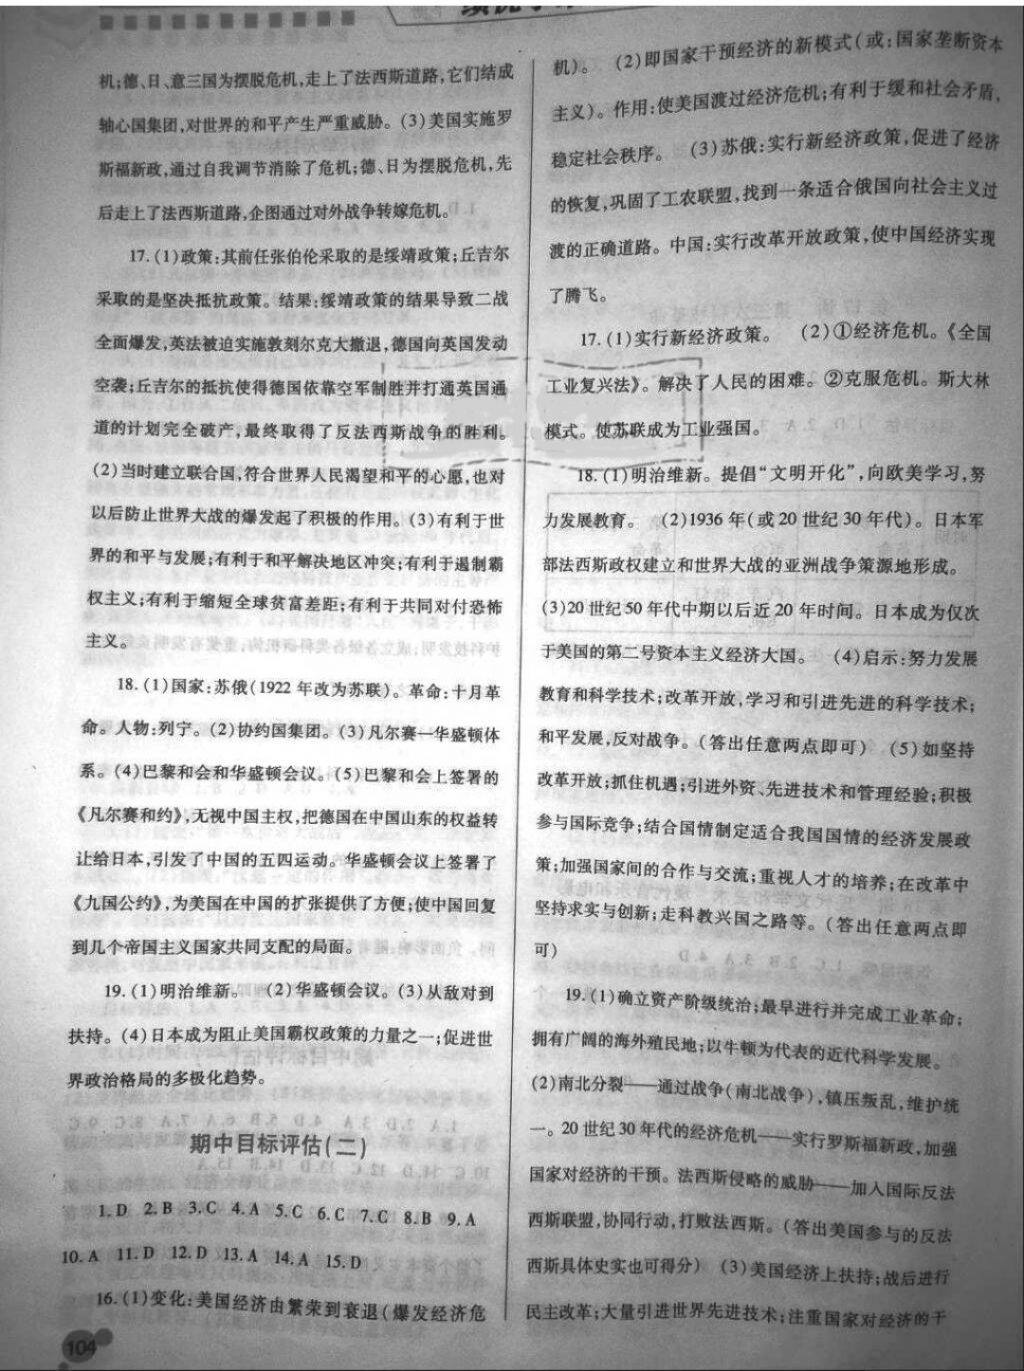 机;德、日、意三国为摆脱危机,走上了法西斯道路,它们结成
轴心国集团,对世界的和平产生严重威胁。(3)美国实施罗
斯福新政,通过自我调节消除了危机;德、日为摆脱危机,先
后走上了法西斯道路,企图通过对外战争转嫁危机。
17.(1)政策:其前任张伯伦采取的是绥靖政策;丘吉尔
采取的是坚决抵抗政策。结果:绥靖政策的结果导致二战
全面爆发,英法被迫实施敦刻尔克大撤退,德国向英国发动
空袭;丘吉尔的抵抗使得德国依靠空军制胜并打通英国通
道的计划完全破产,最终取得了反法西斯战争的胜利。
(2)当时建立联合国,符合世界人民渴望和平的心愿,也对
以后防止世界大战的爆发起了积极的作用。(3)有利于世
界的和平与发展;有利于和平解决地区冲突;有利于遏制霸
权主义;有利于缩短全球贫富差距;有利于共同对付恐怖
主义。
18.(1)国家:苏俄(1922年改为苏联)。革命:十月革
命。人物:列宁。(2)协约国集团。(3)凡尔赛—华盛顿体
系。(4)巴黎和会和华盛顿会议。(5)巴黎和会上签署的
《凡尔赛和约》,无视中国主权,把德国在中国山东的权益转
让给日本,引发了中国的五四运动。华盛顿会议上签署了
《九国公约》,为美国在中国的扩张提供了方便;使中国回复
到几个帝国主义国家共同支配的局面。
19.(1)明治维新。 (2)华盛顿会议。(3)从敌对到
扶持。(4)日本成为阻止美国霸权政策的力量之一;促进世
界政治格局的多极化趋势。
期中目标评估(二)
1.D 2.B 3.C 4.A 5.C 6.C 7.C 8.B 9.A
10.A 11.D 12.D 13.A 14.A 15.D
16.(1)变化:美国经济由繁荣到衰退(爆发经济危
104
机)。 (2)即国家干预经济的新模式(或:国家垄断资本
主义)。作用:使美国渡过经济危机;有利于缓和社会矛盾,
稳定社会秩序。 (3)苏俄:实行新经济政策,促进了经济
的恢复,巩固了工农联盟,找到一条适合俄国向社会主义过
渡的正确道路。中国:实行改革开放政策,使中国经济实现
了腾飞。
17.(1)实行新经济政策。 (2)①经济危机。《全国
工业复兴法》。解决了人民的困难。②克服危机。斯大林
模式。使苏联成为工业强国。
18.(1)明治维新。提倡“文明开化”,向欧美学习,努
力发展教育。 (2)1936年(或20世纪30年代)。日本军
部法西斯政权建立和世界大战的亚洲战争策源地形成。
(3)20世纪50年代中期以后近20年时间。日本成为仅次
于美国的第二号资本主义经济大国。 (4)启示:努力发展
教育和科学技术;改革开放,学习和引进先进的科学技术;
和平发展,反对战争。(答出任意两点即可) (5)如坚持
改革开放;抓住机遇;引进外资、先进技术和管理经验;积极
参与国际竞争;结合国情制定适合我国国情的经济发展政
策;加强国家间的合作与交流;重视人才的培养;在改革中
坚持求实与创新;走科教兴国之路等。(答出任意两点即
可)
19.(1)确立资产阶级统治;最早进行并完成工业革命;
拥有广阔的海外殖民地;以牛顿为代表的近代科学发展。
(2)南北分裂——通过战争(南北战争),镇压叛乱,维护统
一。20世纪30年代的经济危机——实行罗斯福新政,加强
国家对经济的干预。法西斯侵略的威胁——加入国际反法
西斯联盟,协同行动,打败法西斯。(答出美国参与的反法
西斯具体史实也可得分) (3)美国经济上扶持;战后进行
民主改革;大量引进世界先进技术;注重国家对经济的干